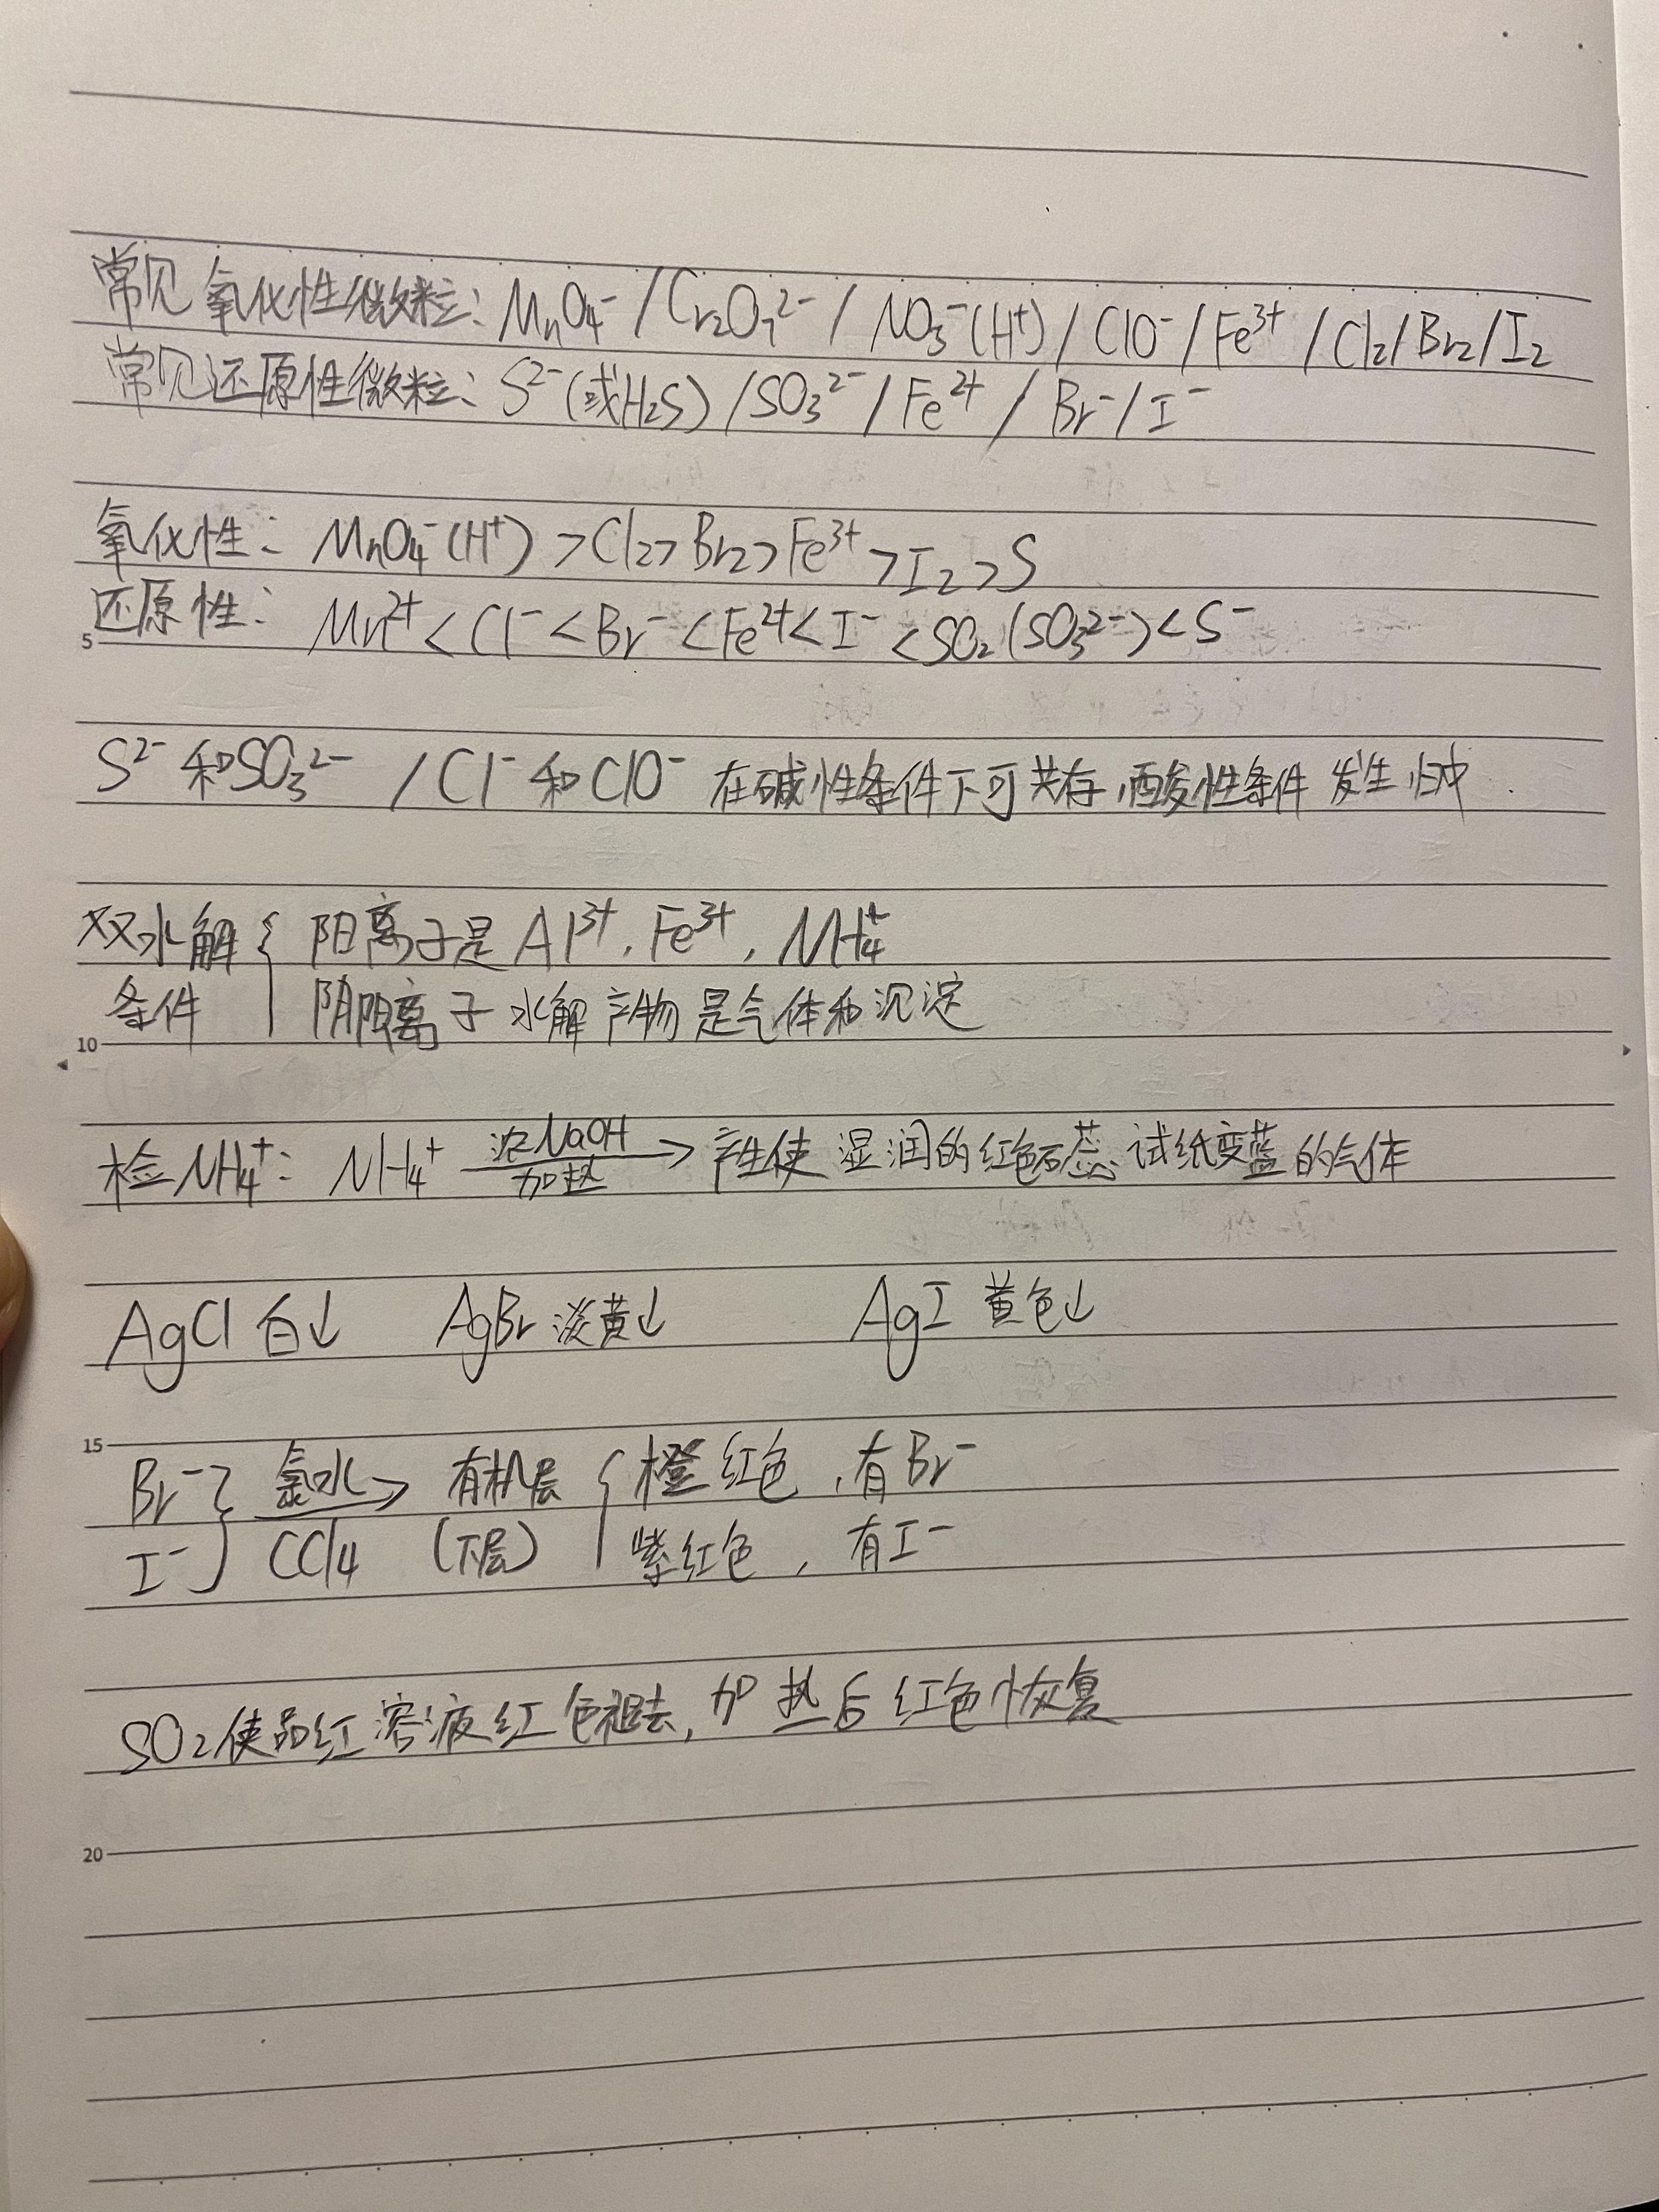 常见氧化性微粒: MnO₄⁻/Cr₂O₇²⁻/NO₃⁻(H⁺)/ClO⁻/Fe³⁺/Cl₂/Br₂/I₂
常见还原性微粒: S²⁻(或H₂S)/SO₃²⁻/Fe²⁺/Br⁻/I⁻
氧化性: MnO₄⁻(H⁺)>Cl₂>Br₂>Fe³⁺>I₂>S
5
还原性: Mn²⁺<Cl⁻<Br⁻<Fe²⁺<I⁻<SO₂(SO₃²⁻)<S⁻
S²⁻和SO₃²⁻/Cl⁻和ClO⁻在碱性条件下可共存酸性条件发生归中
双水解{阳离子是Al³⁺,Fe³⁺,NH₄⁺
10
条件 阴离子水解产物是气体和沉淀
检NH₄⁺: NH₄⁺ 浓NaOH 加热 → 产生使湿润的红色石蕊试纸变蓝的气体
AgCl白↓ AgBr淡黄↓ AgI黄色↓
15
Br⁻} 氯水→有机层{橙红色,有Br⁻
I⁻ CCl₄ (下层) 紫红色,有I⁻
SO₂使品红溶液红色褪去,加热后红色恢复
20